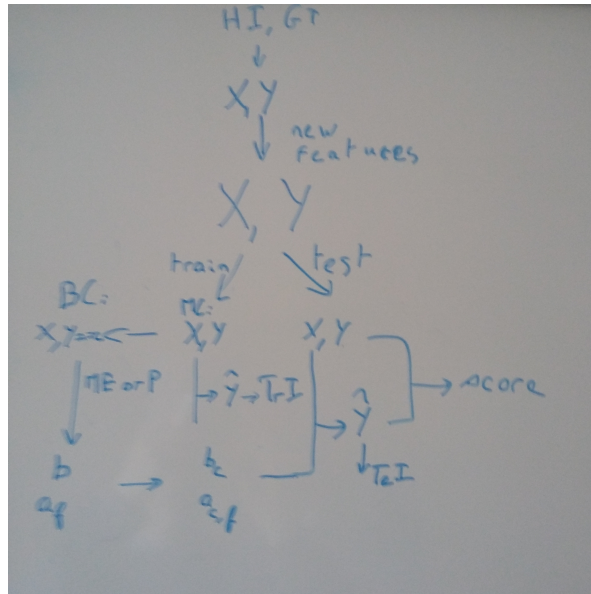 HI, GT
X, Y
new
features
X, Y
train
test
BC:
MC:
X, Y=x<
X, Y
X, Y
ME or P
Ŷ → TrI
score
Ŷ
TeI
b
a_f
b_c
a_c,f